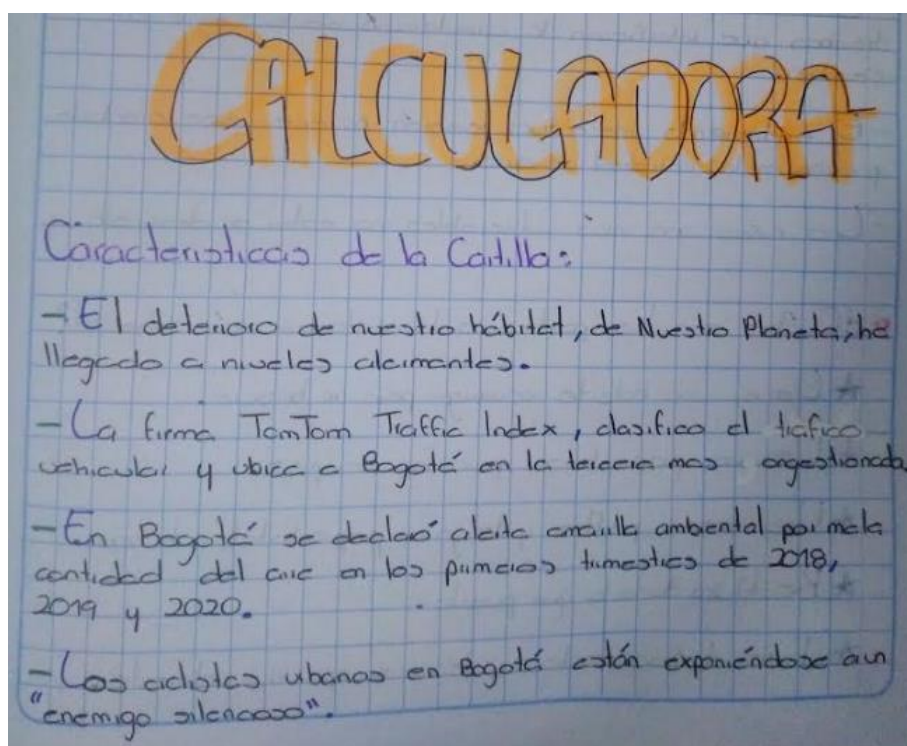 CALCULADORA
Caracteristicas de la Cartilla:
- El deterioro de nuestro hábitat, de Nuestro Planeta, ha
llegado a niveles alarmantes.
- La firma TomTom Traffic Index, clasifico el trafico
vehicular y ubica a Bogotá en la tercera mas ongestionada
- En Bogotá se declaró alerta amarilla ambiental por mala
cantidad del aire en los primeros trimestres de 2018,
2019 y 2020.
- Los ciclistas ubanos en Bogotá están exponiéndose a un
"enemigo silencioso".